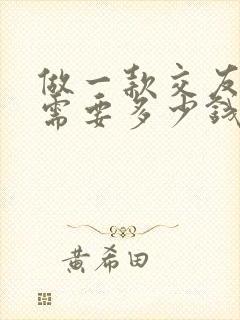 做一款交友
需要多少钱
黄希田